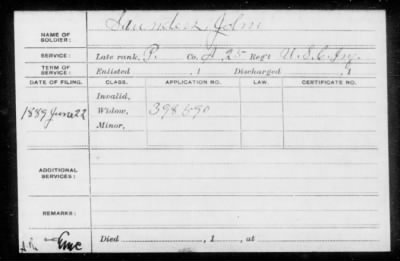 NAME OF SOLDIER: Saunders, John
SERVICE: Late rank, P. Co. A 25 Reg't U.S.C. Inf.
TERM OF SERVICE: Enlisted , 1 Discharged , 1
DATE OF FILING. CLASS. APPLICATION NO. LAW. CERTIFICATE NO.
Invalid,
1889 June 22 Widow, 398590
Minor,
ADDITIONAL SERVICES:
REMARKS:
Died , 1 , at